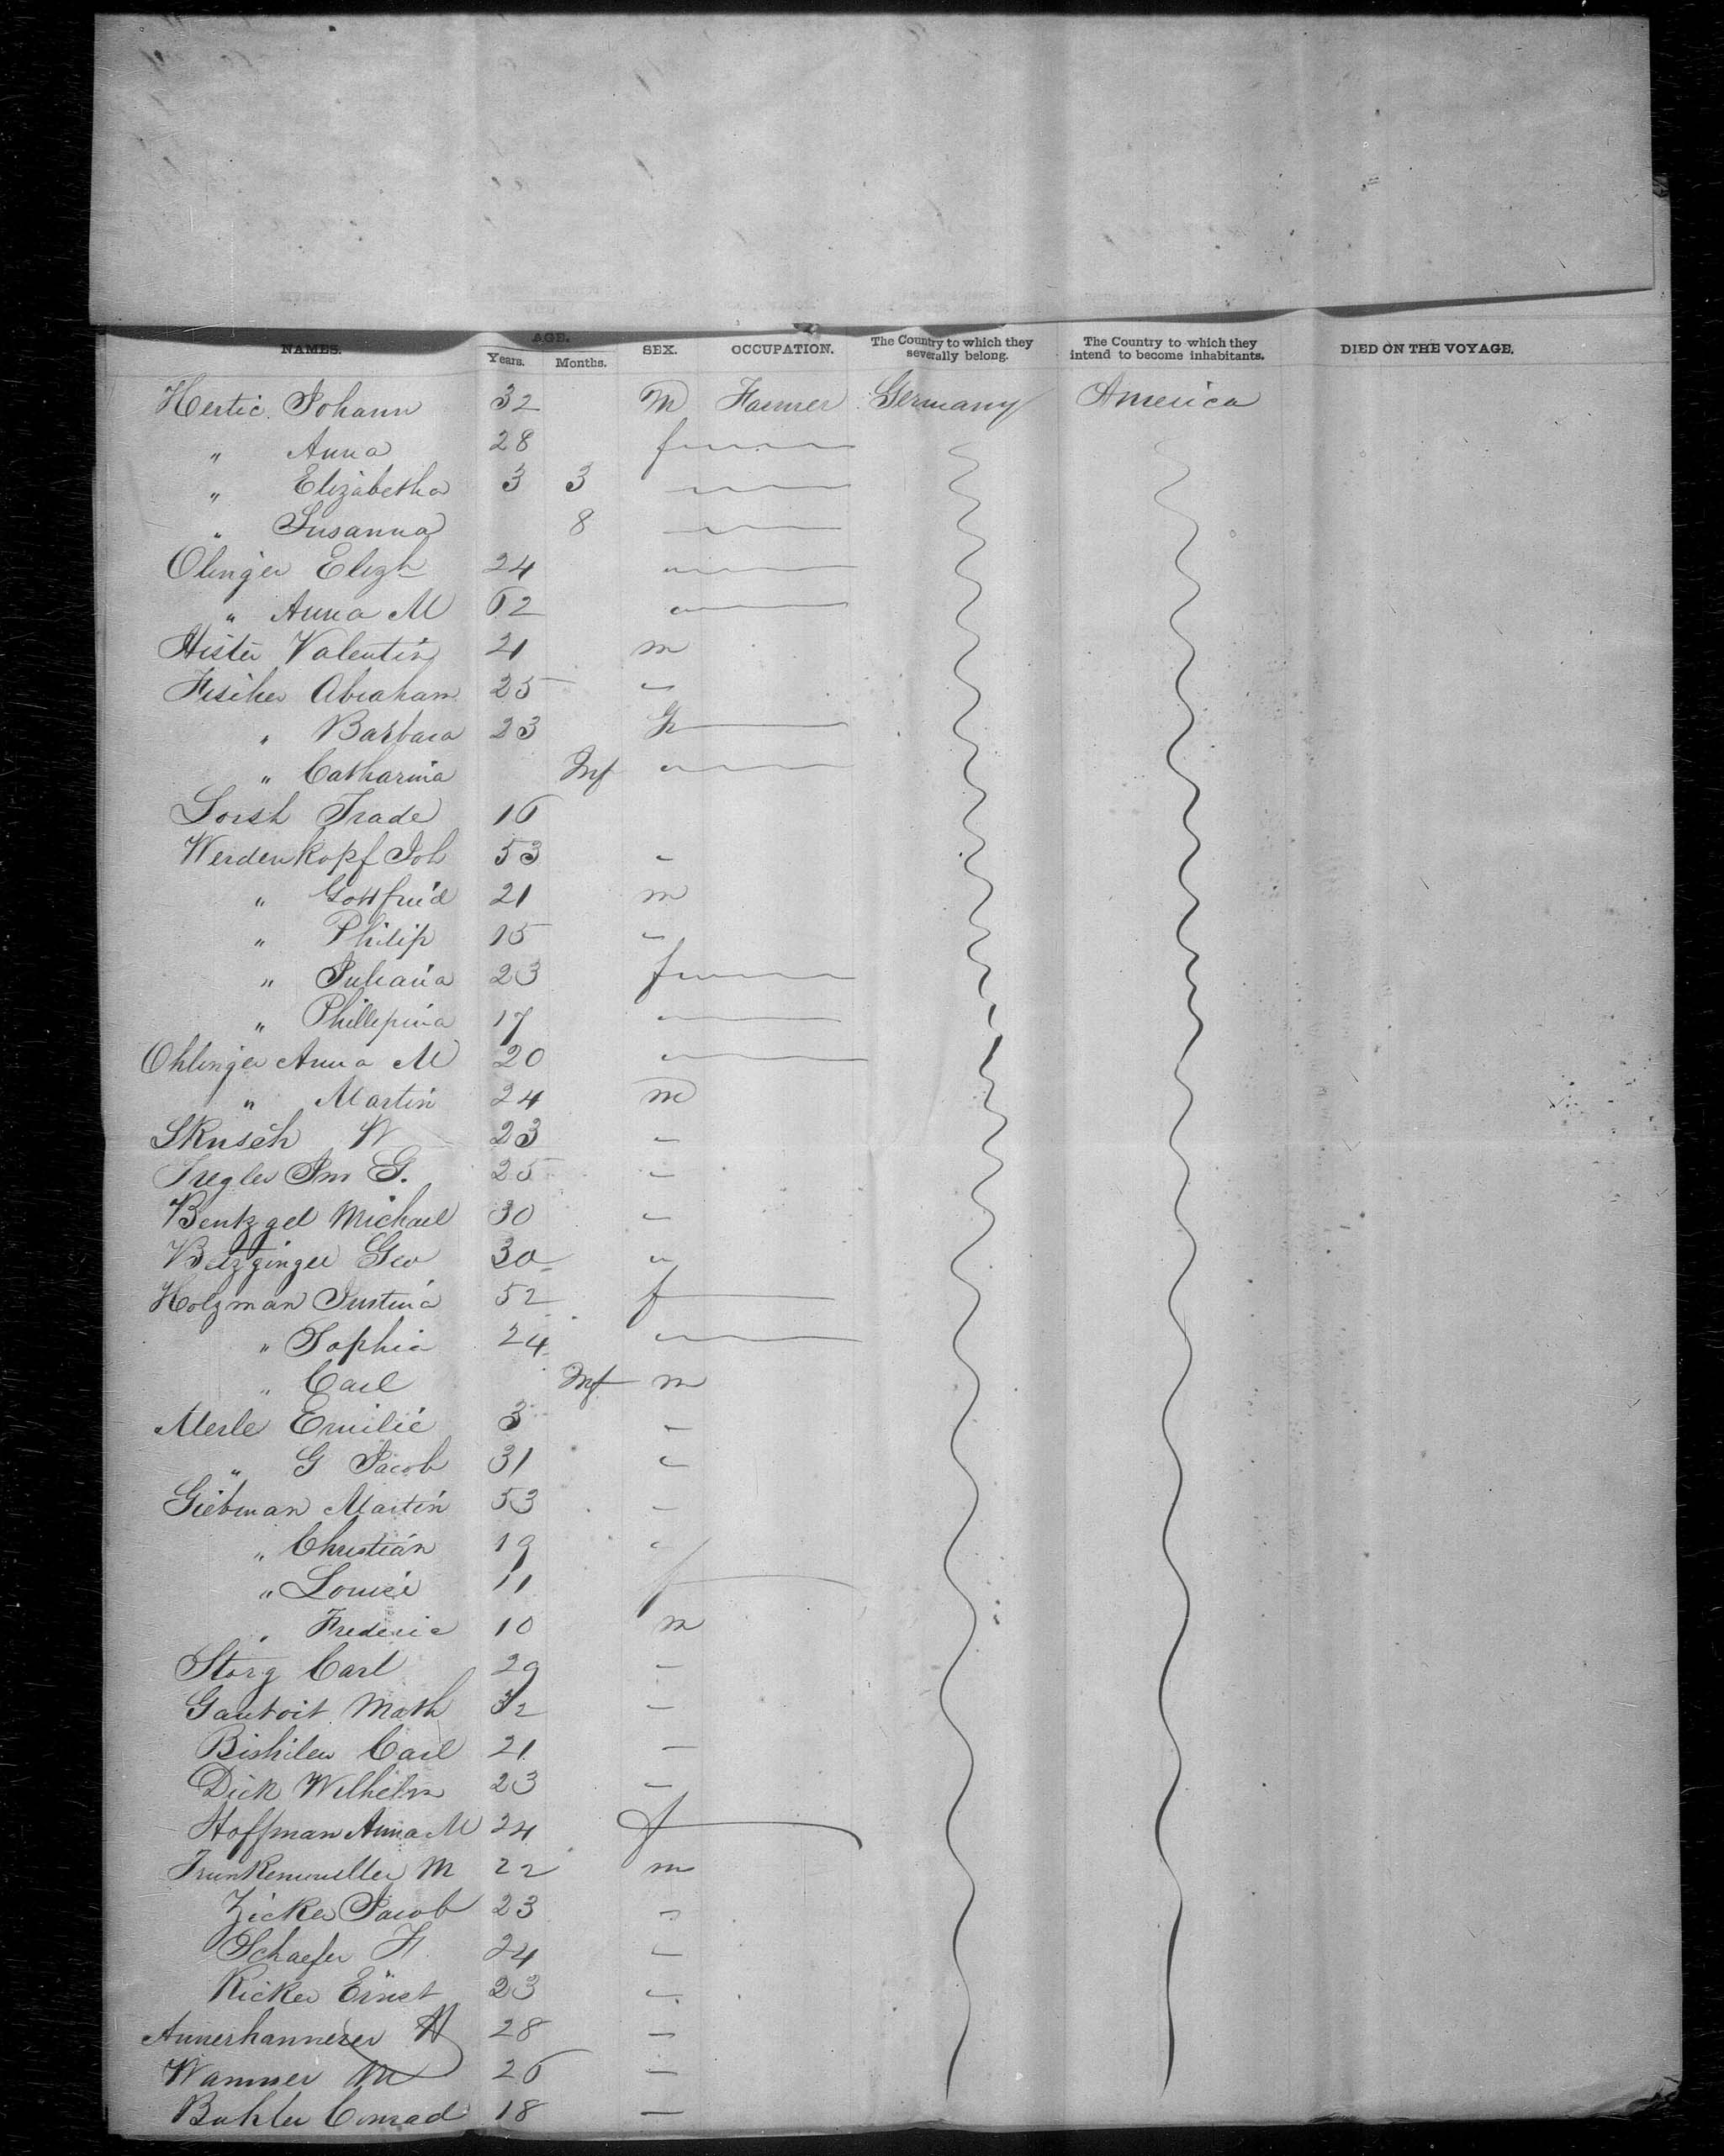 NAMES. AGE. Years. Months. SEX. OCCUPATION. The Country to which they severally belong. The Country to which they intend to become inhabitants. DIED ON THE VOYAGE.
Hertic Johann 32 M Farmer Germany America
" Anna 28 f
" Elizabetha 3 3
" Susanna 8
Olinger Elizh 24
" Anna M 62
Valentin 21 m
Fischer Abraham 25
" Barbara 23
" Catharina Inf
Trade 16
Werdenkopf Joh 53
" Gottfried 21 m
" Philip 15
" Juliana 23 f
" Phillipina 17
Ohlinger Anna M 20
" Martin 24 m
W 23
G. 25
Bentzgel Michael 30
Betzginger Geo 30
Holzman Justina 52 f
" Sophia 24
" Carl Inf m
Merle Emilie 3
" G Jacob 31
Giebman Martin 53
" Christian 19
" Louise 11 f
" Frederic 10 m
Storg Carl 29
Math 32
Carl 21
Dick Wilhelm 23
Hoffman Anna M 24 f
Trunkenmuller M 22 m
Zicker Jacob 23
Schaefer F 24
Ricker Ernst 23
28
Wammer M 26
Buhler Conrad 18